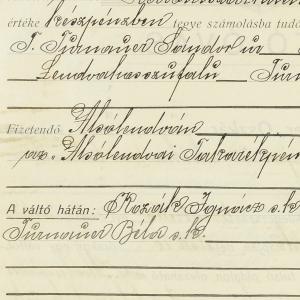 értéke készpénzben tegye számolásba tudó
T. Turnauer Sándor ur
Lendvahosszufalu
Fizetendő Alsólendván
az "Alsólendvai Takarékpén
A váltó hátán: Kozák Ignácz s.k.
Turnauer Béla s.k.